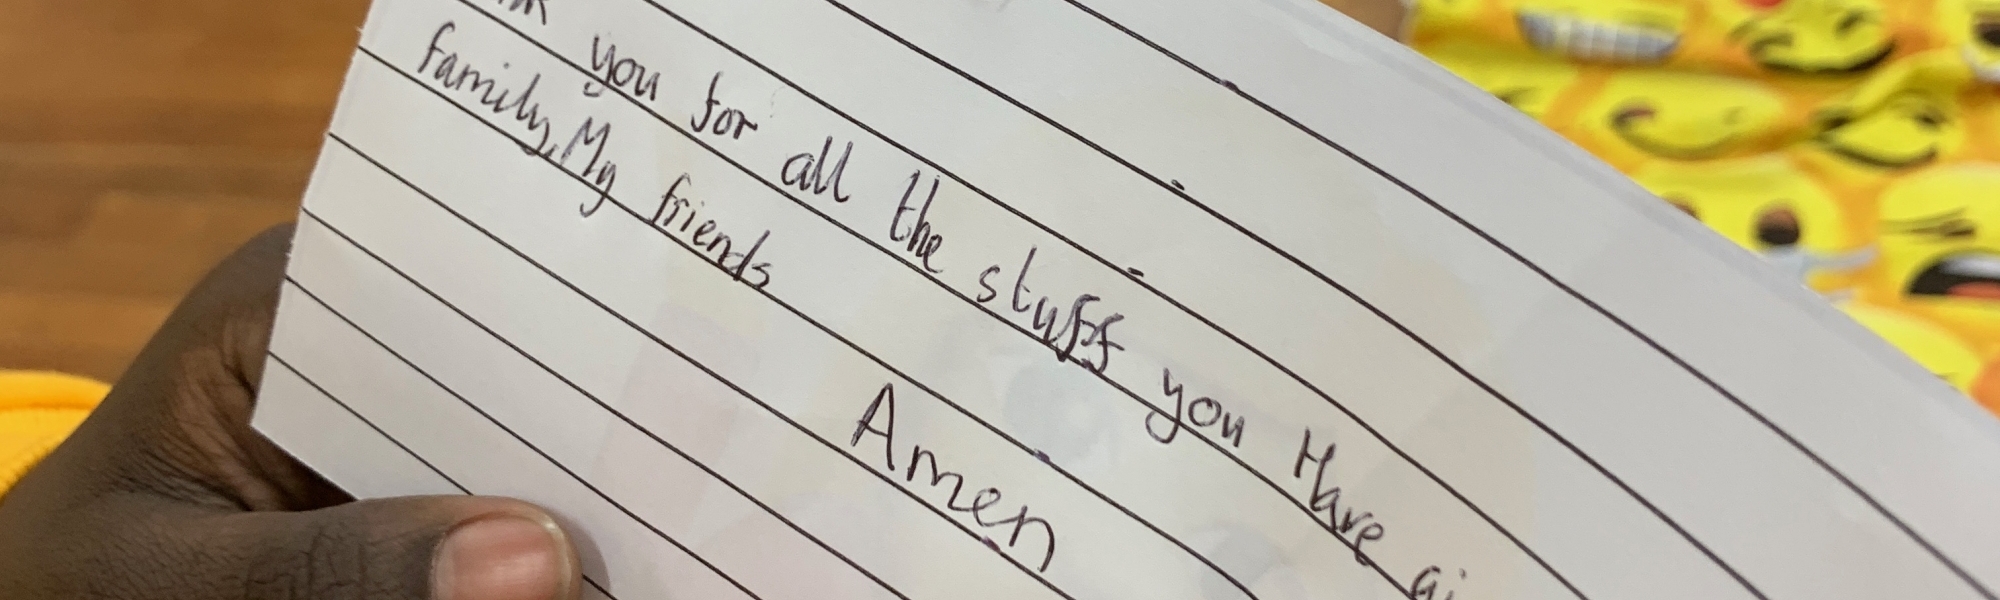 you for all the stuff you Have
family, My friends
Amen